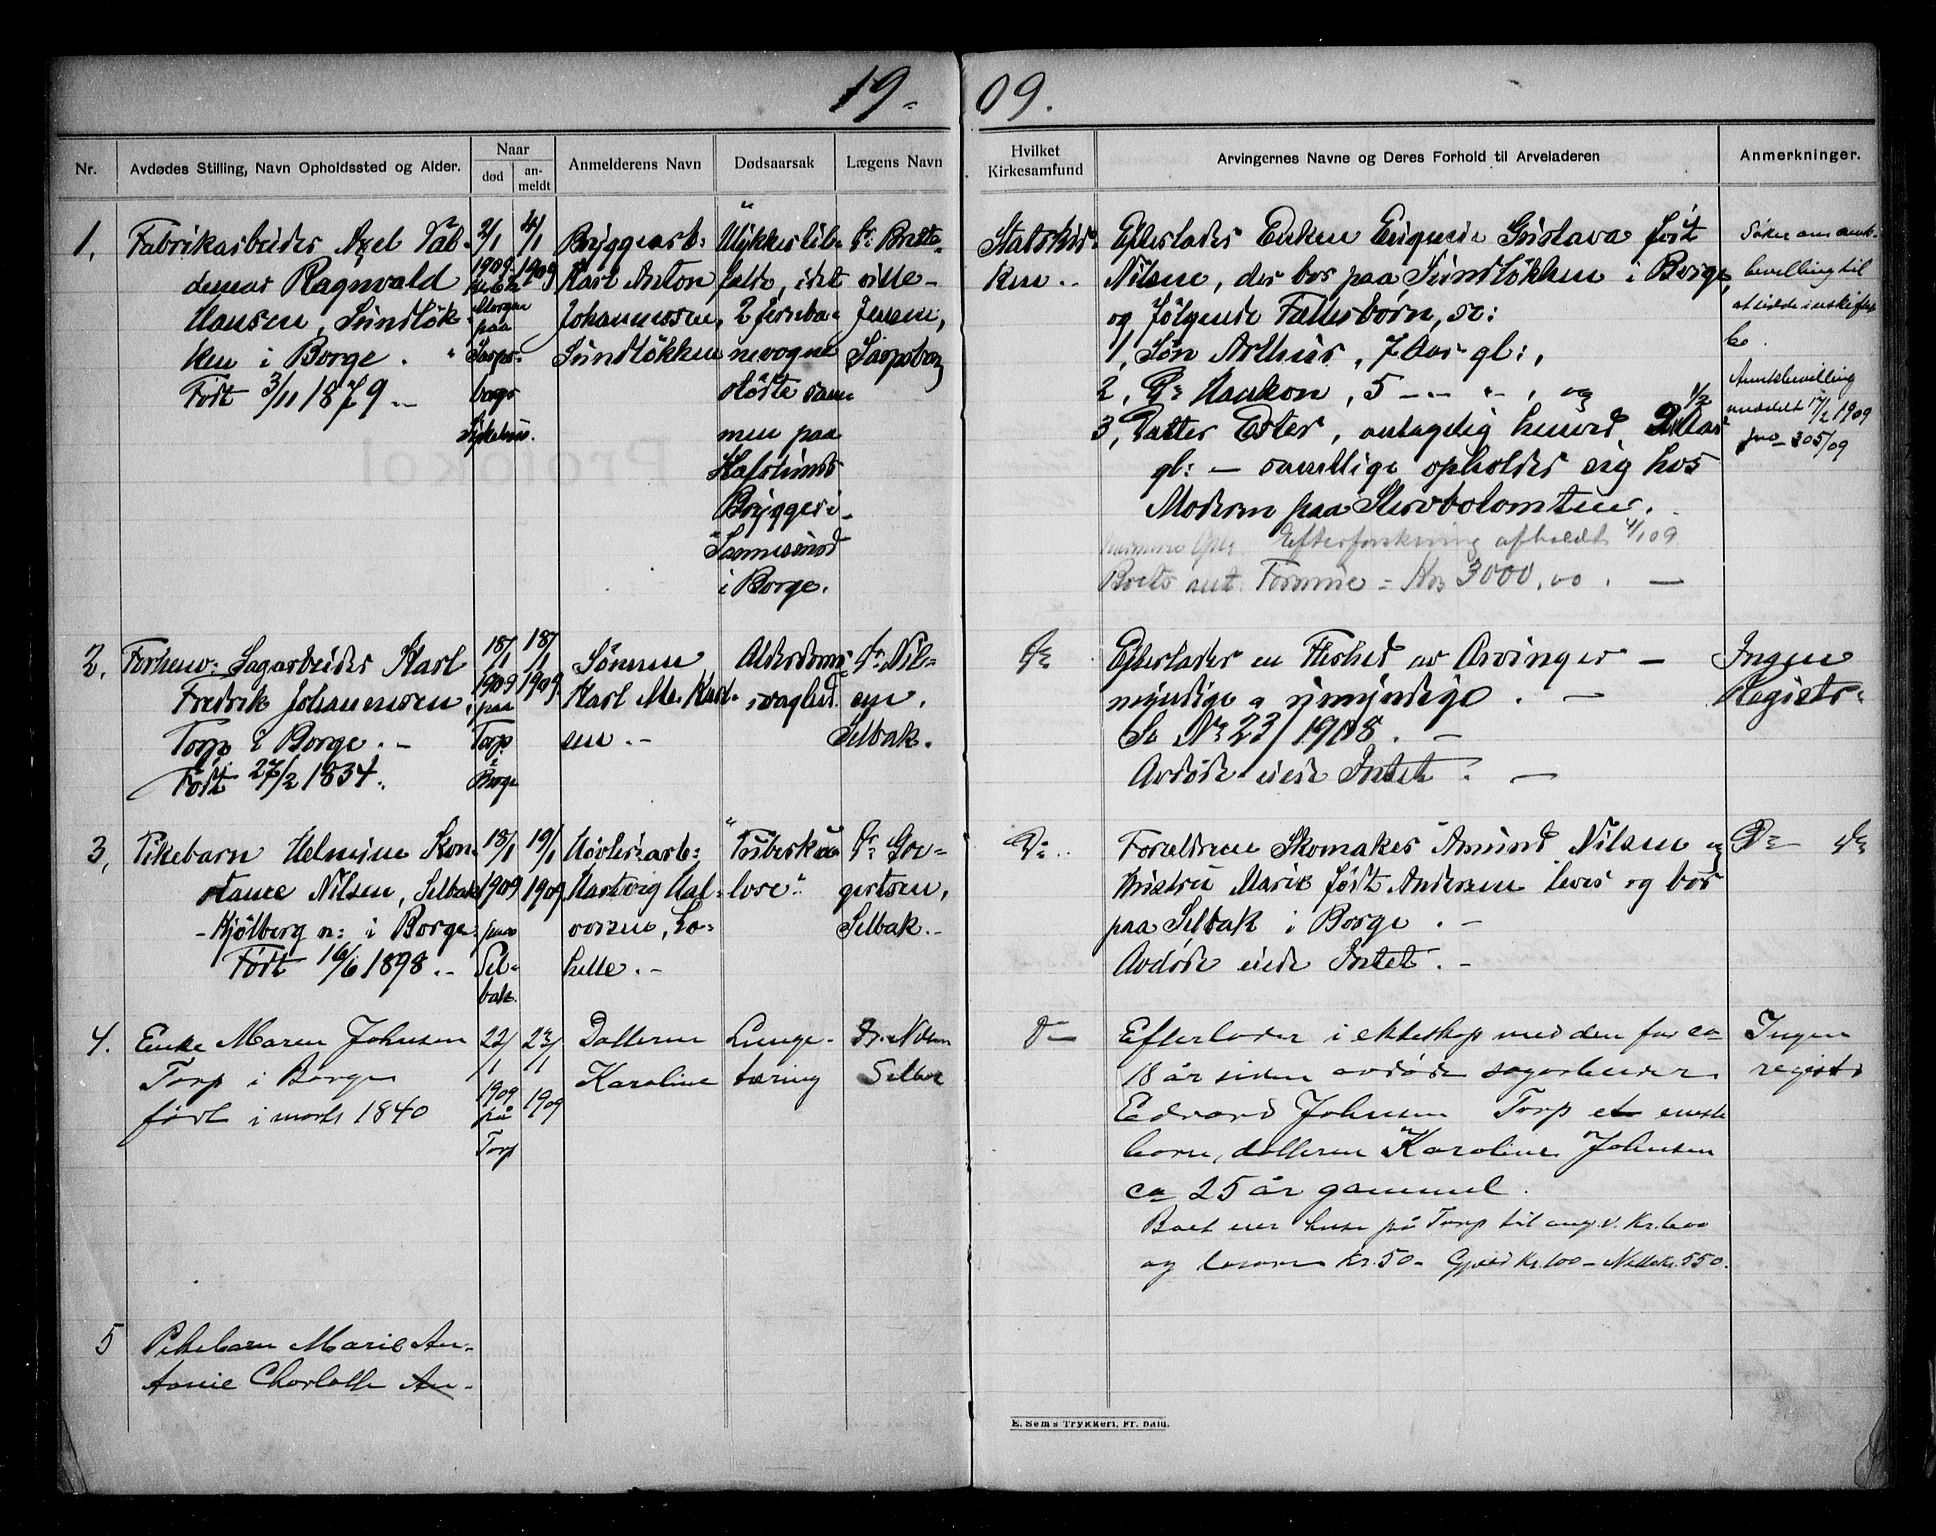 19- 09.
Nr.
Avdødes Stilling, Navn Opholdssted og Alder.
Naar
død
an-
meldt
Anmelderens Navn
Dødsaarsak
Lægens Navn
Hvilket
Kirkesamfund
Arvingernes Navne og Deres Forhold til Arveladeren
Anmerkninger.
1,
Fabrikarbeider Axel Val-
demar Ragnvald
Hansen, Sundløk-
ken i Borge.
Født 3/11 1879 ..
2/1
1909
Morgen
paa
Sarps-
borgs
Sykehus.
4/1
1909
Bryggearb:
Karl Anton
Johannessen,
Sundløkken
"Ulykkestil-
fælde, idet
2 jernba-
nevogne
stødte sam-
men paa
Hafslunds
Bryggeri-
Sannesund
i Borge.
Dr. Brette-
ville-
Jensen,
Sarpsborg
Statskir-
ken ..
Efterlader Enken Eugenie Gustava født
Nilsen, der bor paa Sundløkken i Borge,
og følgende Fællesbørn, se:
1, Søn Arthur, 7 Aar gl:,
2, Do Haakon, 5 -- " -, og
3, Datter Ester, antagelig henved 2 1/2 Aar
gl: - samtlige opholder sig hos
Moderen paa Stervbotomten.
Efterforskning afholdt 4/1 09.
Boets ant. Formue = Kr 3000,00. -
Søker om amts-
bevilling til
at sidde i uskiftet
bo.
Amtsbevilling
meddelt 17/2 1909
jno 305/09
2,
Forhenv: Sagarbeider Karl
Fredrik Johannessen,
Torp i Borge. -
Født 27/2 1834.
18/1
1909
paa
Torp
i
Borge
18/1
1909
Sønnen
Karl M. Karl-
sen. -
Alderdoms-
svaghed.
Dr. Nil-
sen.
Selbak.
Do
Efterlader en Flerhed av Arvinger -
myndige o umyndige. -
Se No 23/1908. -
Avdøde eiede Intet. -
Ingen
Registr-
3,
Pikebarn Helmine Kon-
stance Nilsen, Selbak
- Kjølberg n: i Borge
Født 16/6 1898. -
18/1
1909
paa
Sel-
bak.
19/1
1909
Høvleriarb:
Hartvig Hal-
vorsen, Lo-
helle. -
"Tuberku-
lose".
Dr. Gov-
gertsen,
Selbak. -
Do ..
Forældrene Skomaker Amund Nilsen og
Hustru Marie født Andersen lever og bor
paa Selbak i Borge. -
Avdøde eiede Intet. -
Do - Do
4.
Enke Maren Johnsen
Torp i Borge
født i marts 1840
22/1
1909
på
Torp
23/1
1909
Datteren
Karoline
Lunge-
tæring
Dr. Nilsen
Selbak
Do
Efterlader i ekteskap med den for ca
18 år siden avdøde sagarbeider
Edvard Johnsen Torp et eneste
barn, datteren Karoline Johnsen
ca 25 år gammel.
Boet eier huse på Torp til ang. v. Kr. 600
og løsøre Kr. 50 - Gjæld Kr. 100 - Netto kr. 550.
Ingen
registr
5
Pikebarn Marie An-
tonie Charlotte An-
E. Sem's Trykkeri, Fr. hald.